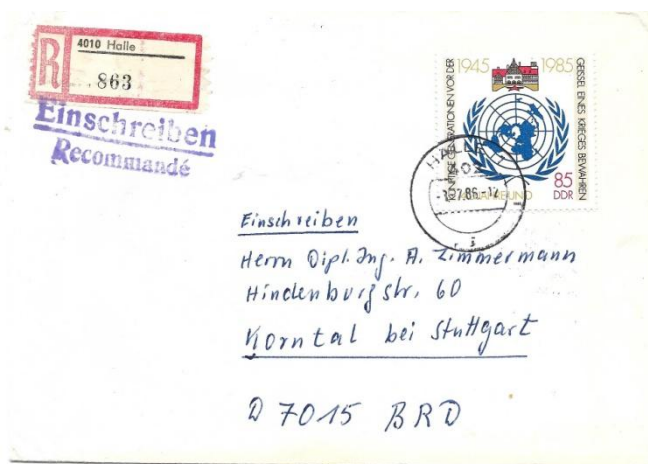 R
4010 Halle
863
Einschreiben
Recommandé
1945 1985
KÜNFTIGE GENERATIONEN VOR DER
GEISSEL EINES KRIEGES BEWAHREN
85
DDR
HALLE
86-12
Einschreiben
Herrn Dipl. Ing. A. Zimmermann
Hindenburgstr. 60
Korntal bei Stuttgart
D 7015 BRD